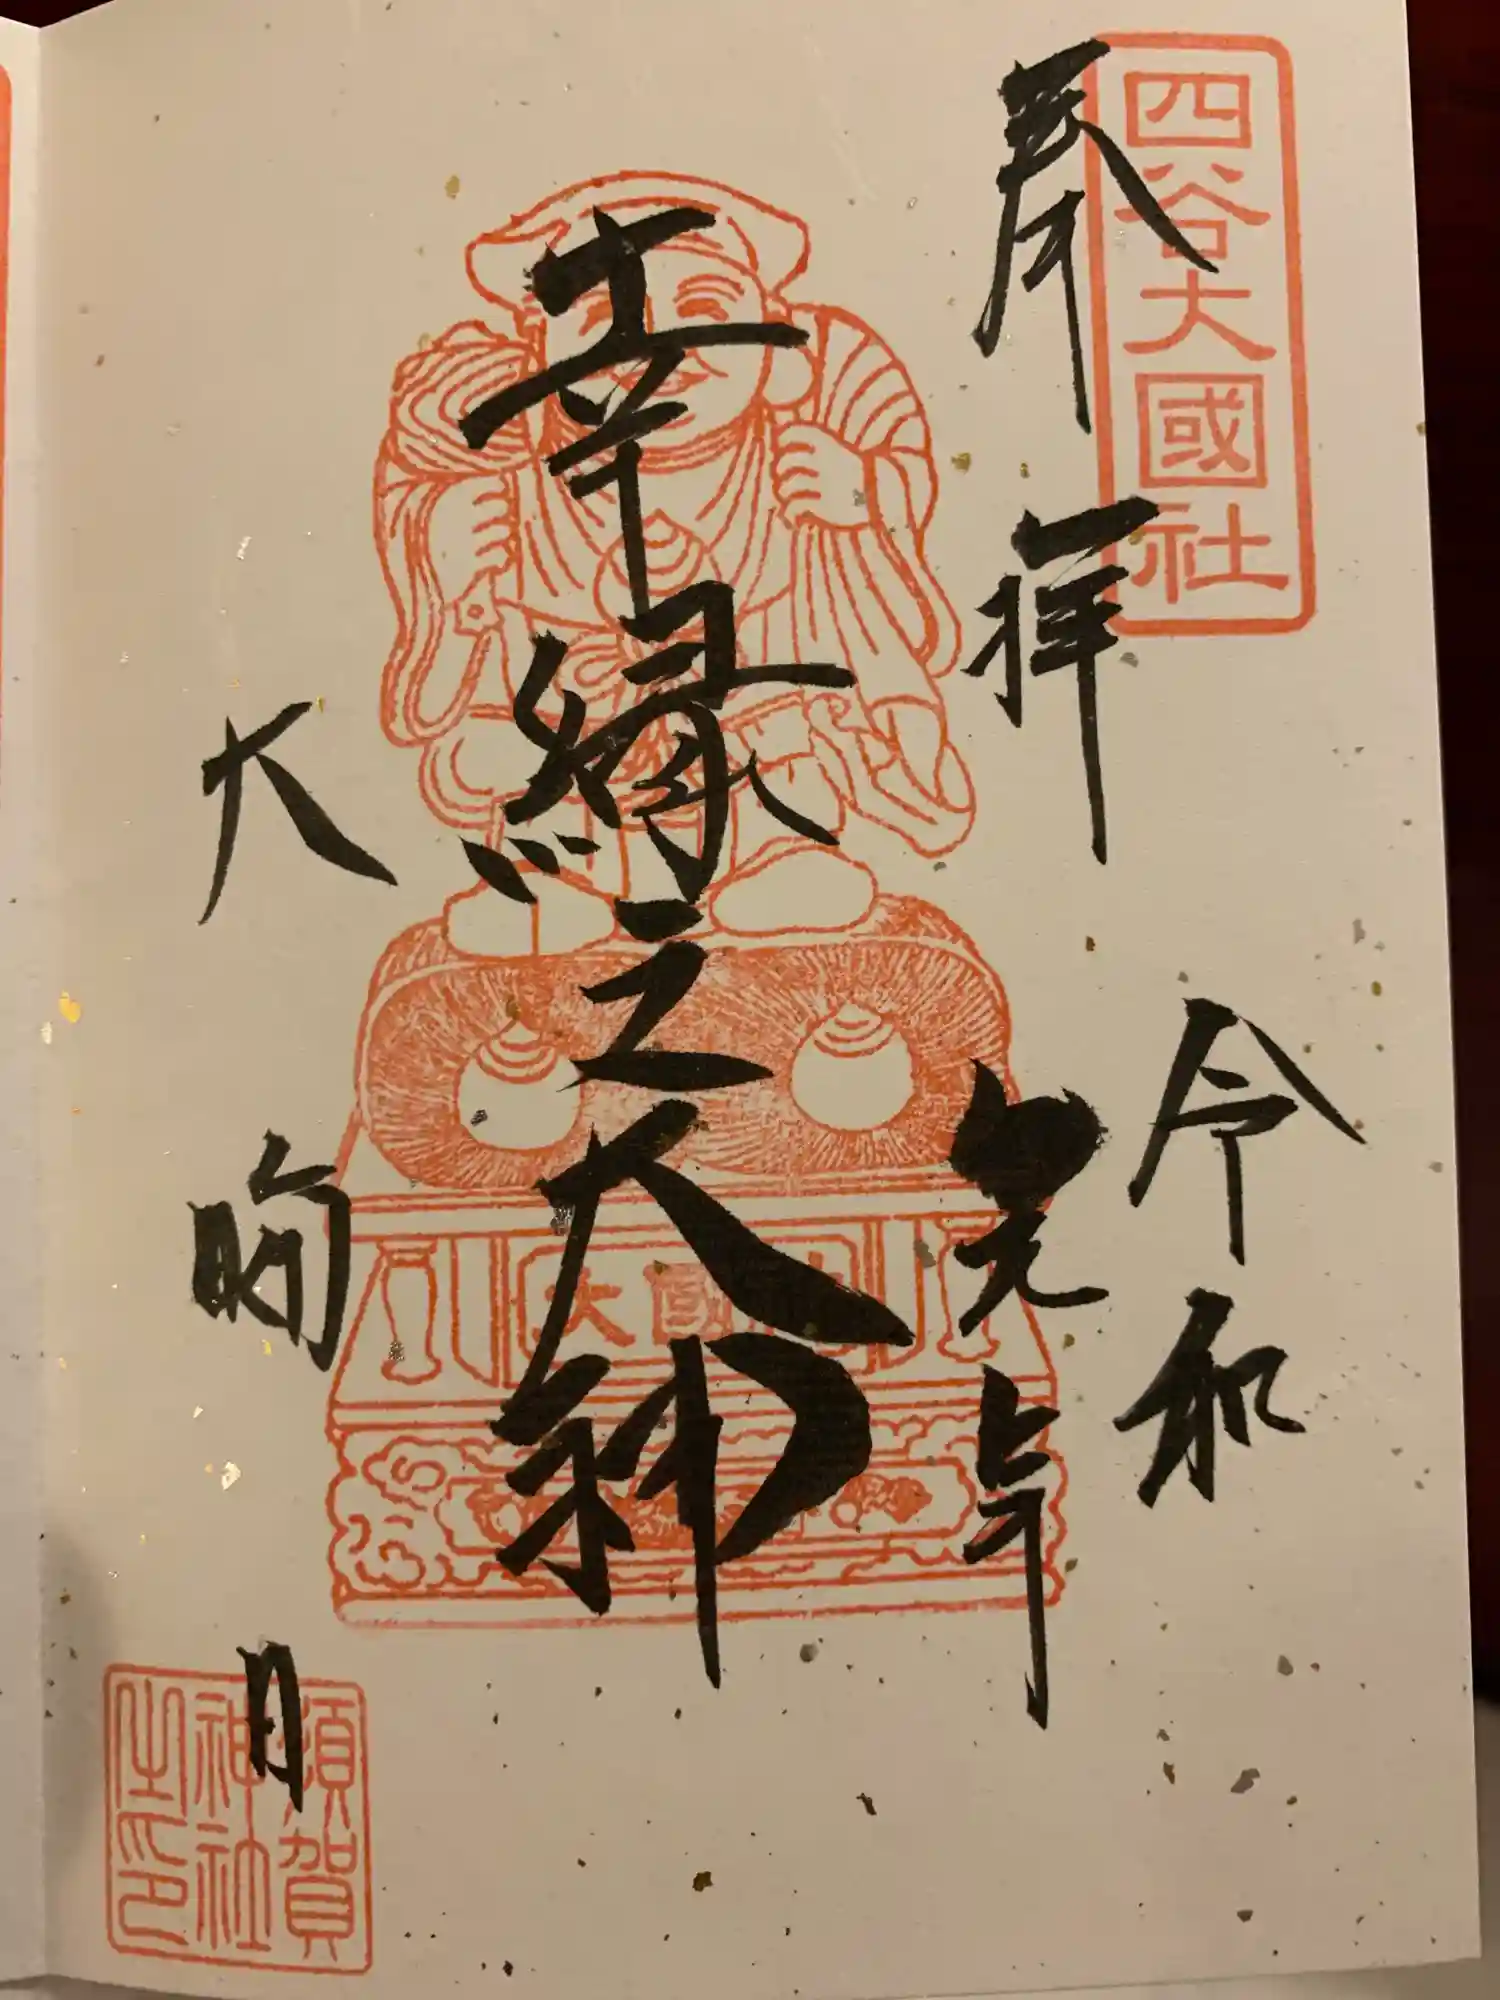 四谷大國社
奉拝
令和
元年
幸縁之大神
大國
大晦日
須賀
神社
之印